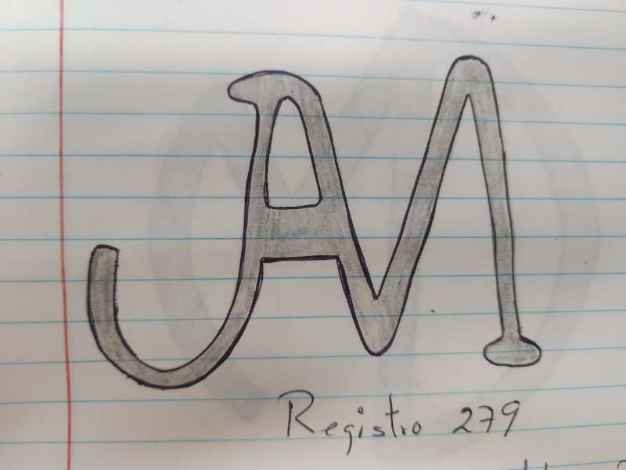 JAM
Registro 279